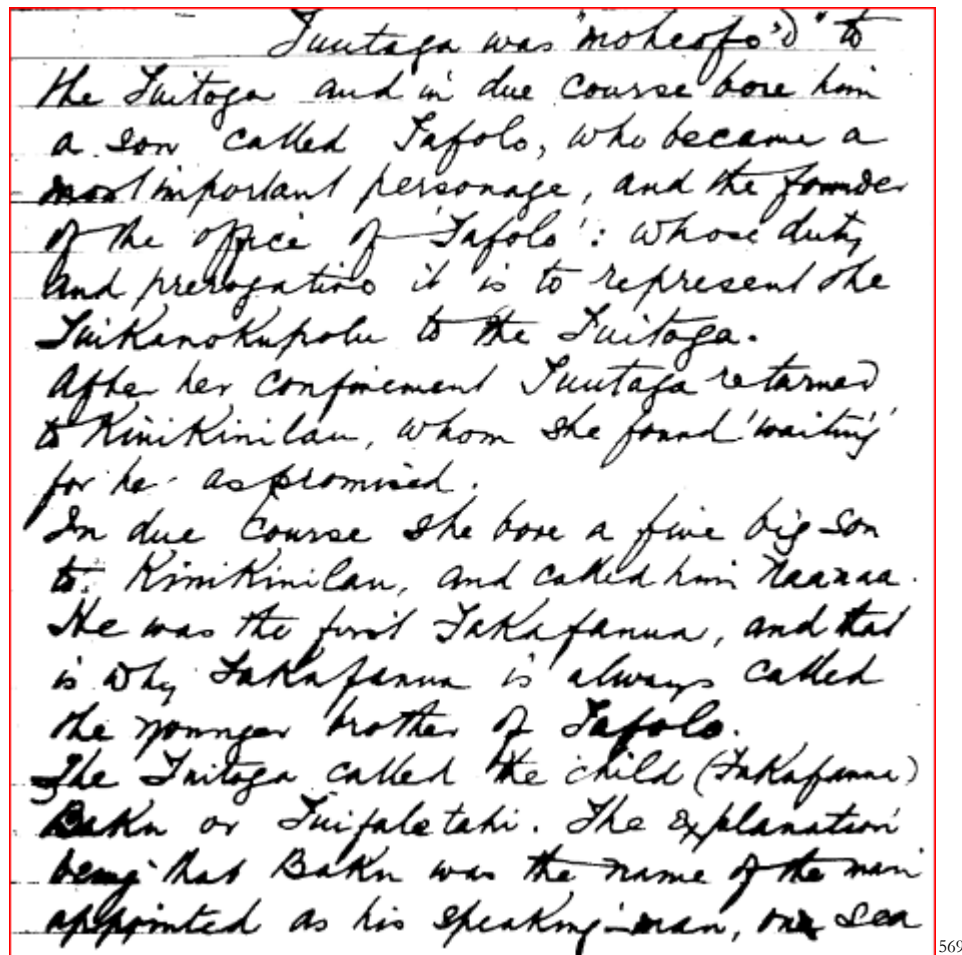 Tuutaga was "moheofo'd" to
the Tuitoga and in due course bore him
a son called Tafolo, who became a
most important personage, and the founder
of the office of 'Tafolo': whose duty
and prerogative it is to represent the
Tuikanokupolu to the Tuitoga.
After her confinement Tuutaga returned
to Kinikinilau, whom she found 'waiting'
for he as promised.
In due course she bore a fine big son
to Kinikinilau, and called him Naanaa.
He was the first Takafanua, and that
is why Takafanua is always called
the younger brother of Tafolo.
The Tuitoga called the child (Takafanua)
Baku or Tuifaletahi. The explanation
being that Baku was the name of the man
appointed as his speaking-man, on sea
569